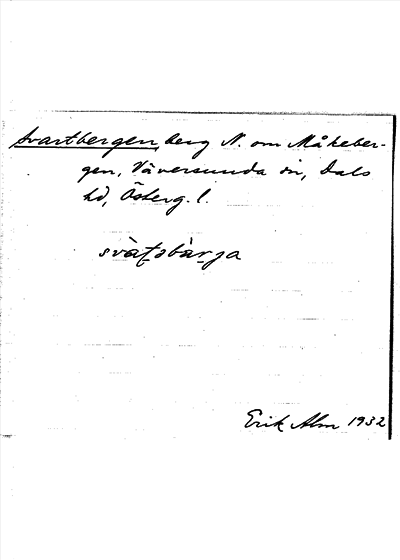 Svartbergen, berg N. om Måkeber-
gen, Väversunda sn, Dals
hd, Österg. l.
svàt̠sbàr̠ja
Erik Alm 1932